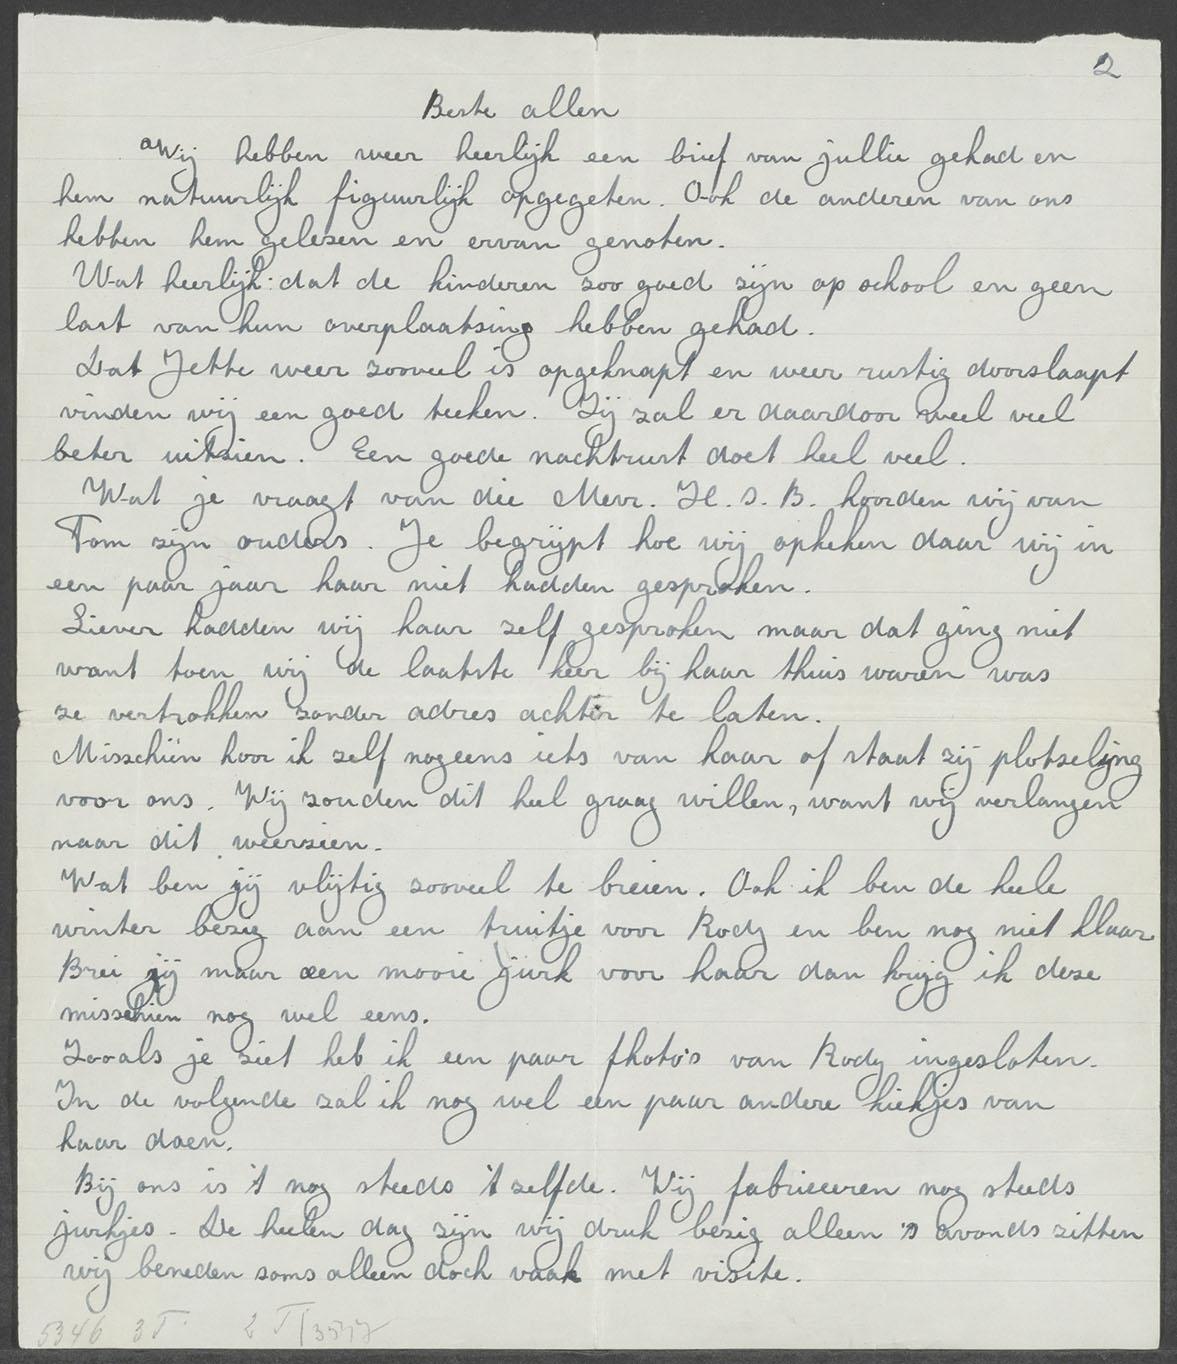 2
Beste allen
Wij hebben weer heerlijk een brief van jullie gehad en
hem natuurlijk figuurlijk opgegeten. Ook de anderen van ons
hebben hem gelezen en ervan genoten.
Wat heerlijk dat de kinderen zoo goed zijn op school en geen
last van hun overplaatsing hebben gehad.
Dat Jette weer zooveel is opgeknapt en weer rustig doorslaapt
vinden wij een goed teeken. Zij zal er daardoor weel veel
beter uitzien. Een goede nachtrust doet heel veel.
Wat je vraagt van die Mevr. H. S. B. hoorden wij van
Tom zijn ouders. Je begrijpt hoe wij opkeken daar wij in
een paar jaar haar niet hadden gesproken.
Liever hadden wij haar zelf gesproken maar dat ging niet
want toen wij de laatste keer bij haar thuis waren was
ze vertrokken zonder adres achter te laten.
Misschien hoor ik zelf nogeens iets van haar of staat zij plotselijng
voor ons. Wij zouden dit heel graag willen, want wij verlangen
naar dit weerzien.
Wat ben jij vlijtig zooveel te breien. Ook ik ben de heele
winter bezig aan een truitje voor Rody en ben nog niet klaar
Brei jij maar een mooie jurk voor haar dan krijg ik deze
misschien nog wel eens.
Zooals je ziet heb ik een paar photo's van Rody ingesloten.
In de volgende zal ik nog wel een paar andere kiekjes van
haar doen.
Bij ons is 't nog steeds 't zelfde. Wij fabrieeren nog steeds
jurkjes. De heelen dag zijn wij druk bezig alleen 's avonds zitten
wij beneden soms alleen doch vaak met visite.
5346 3T